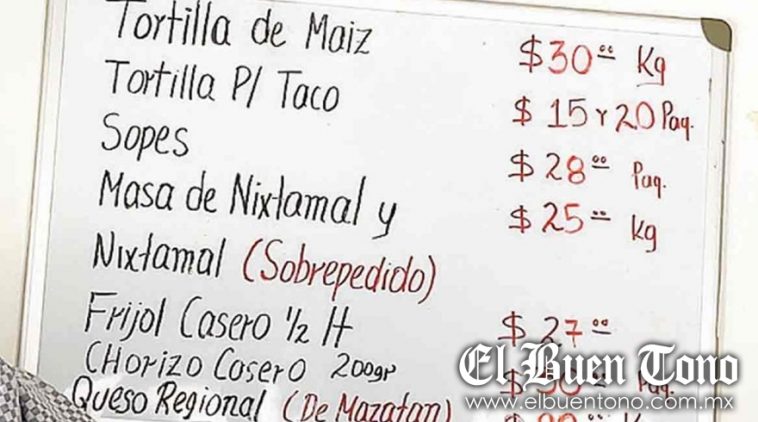 Tortilla de Maiz $30.00 Kg
Tortilla P/ Taco $ 15 Y 20 Paq.
Sopes $28.00 Paq.
Masa de Nixtamal y $25.00 Kg
Nixtamal (Sobrepedido)
Frijol Casero ½ lt $27.00
CHorizo Casero 200gr Paq.
Queso Regional (De Mazatan)
El Buen Tono
www.elbuentono.com.mx